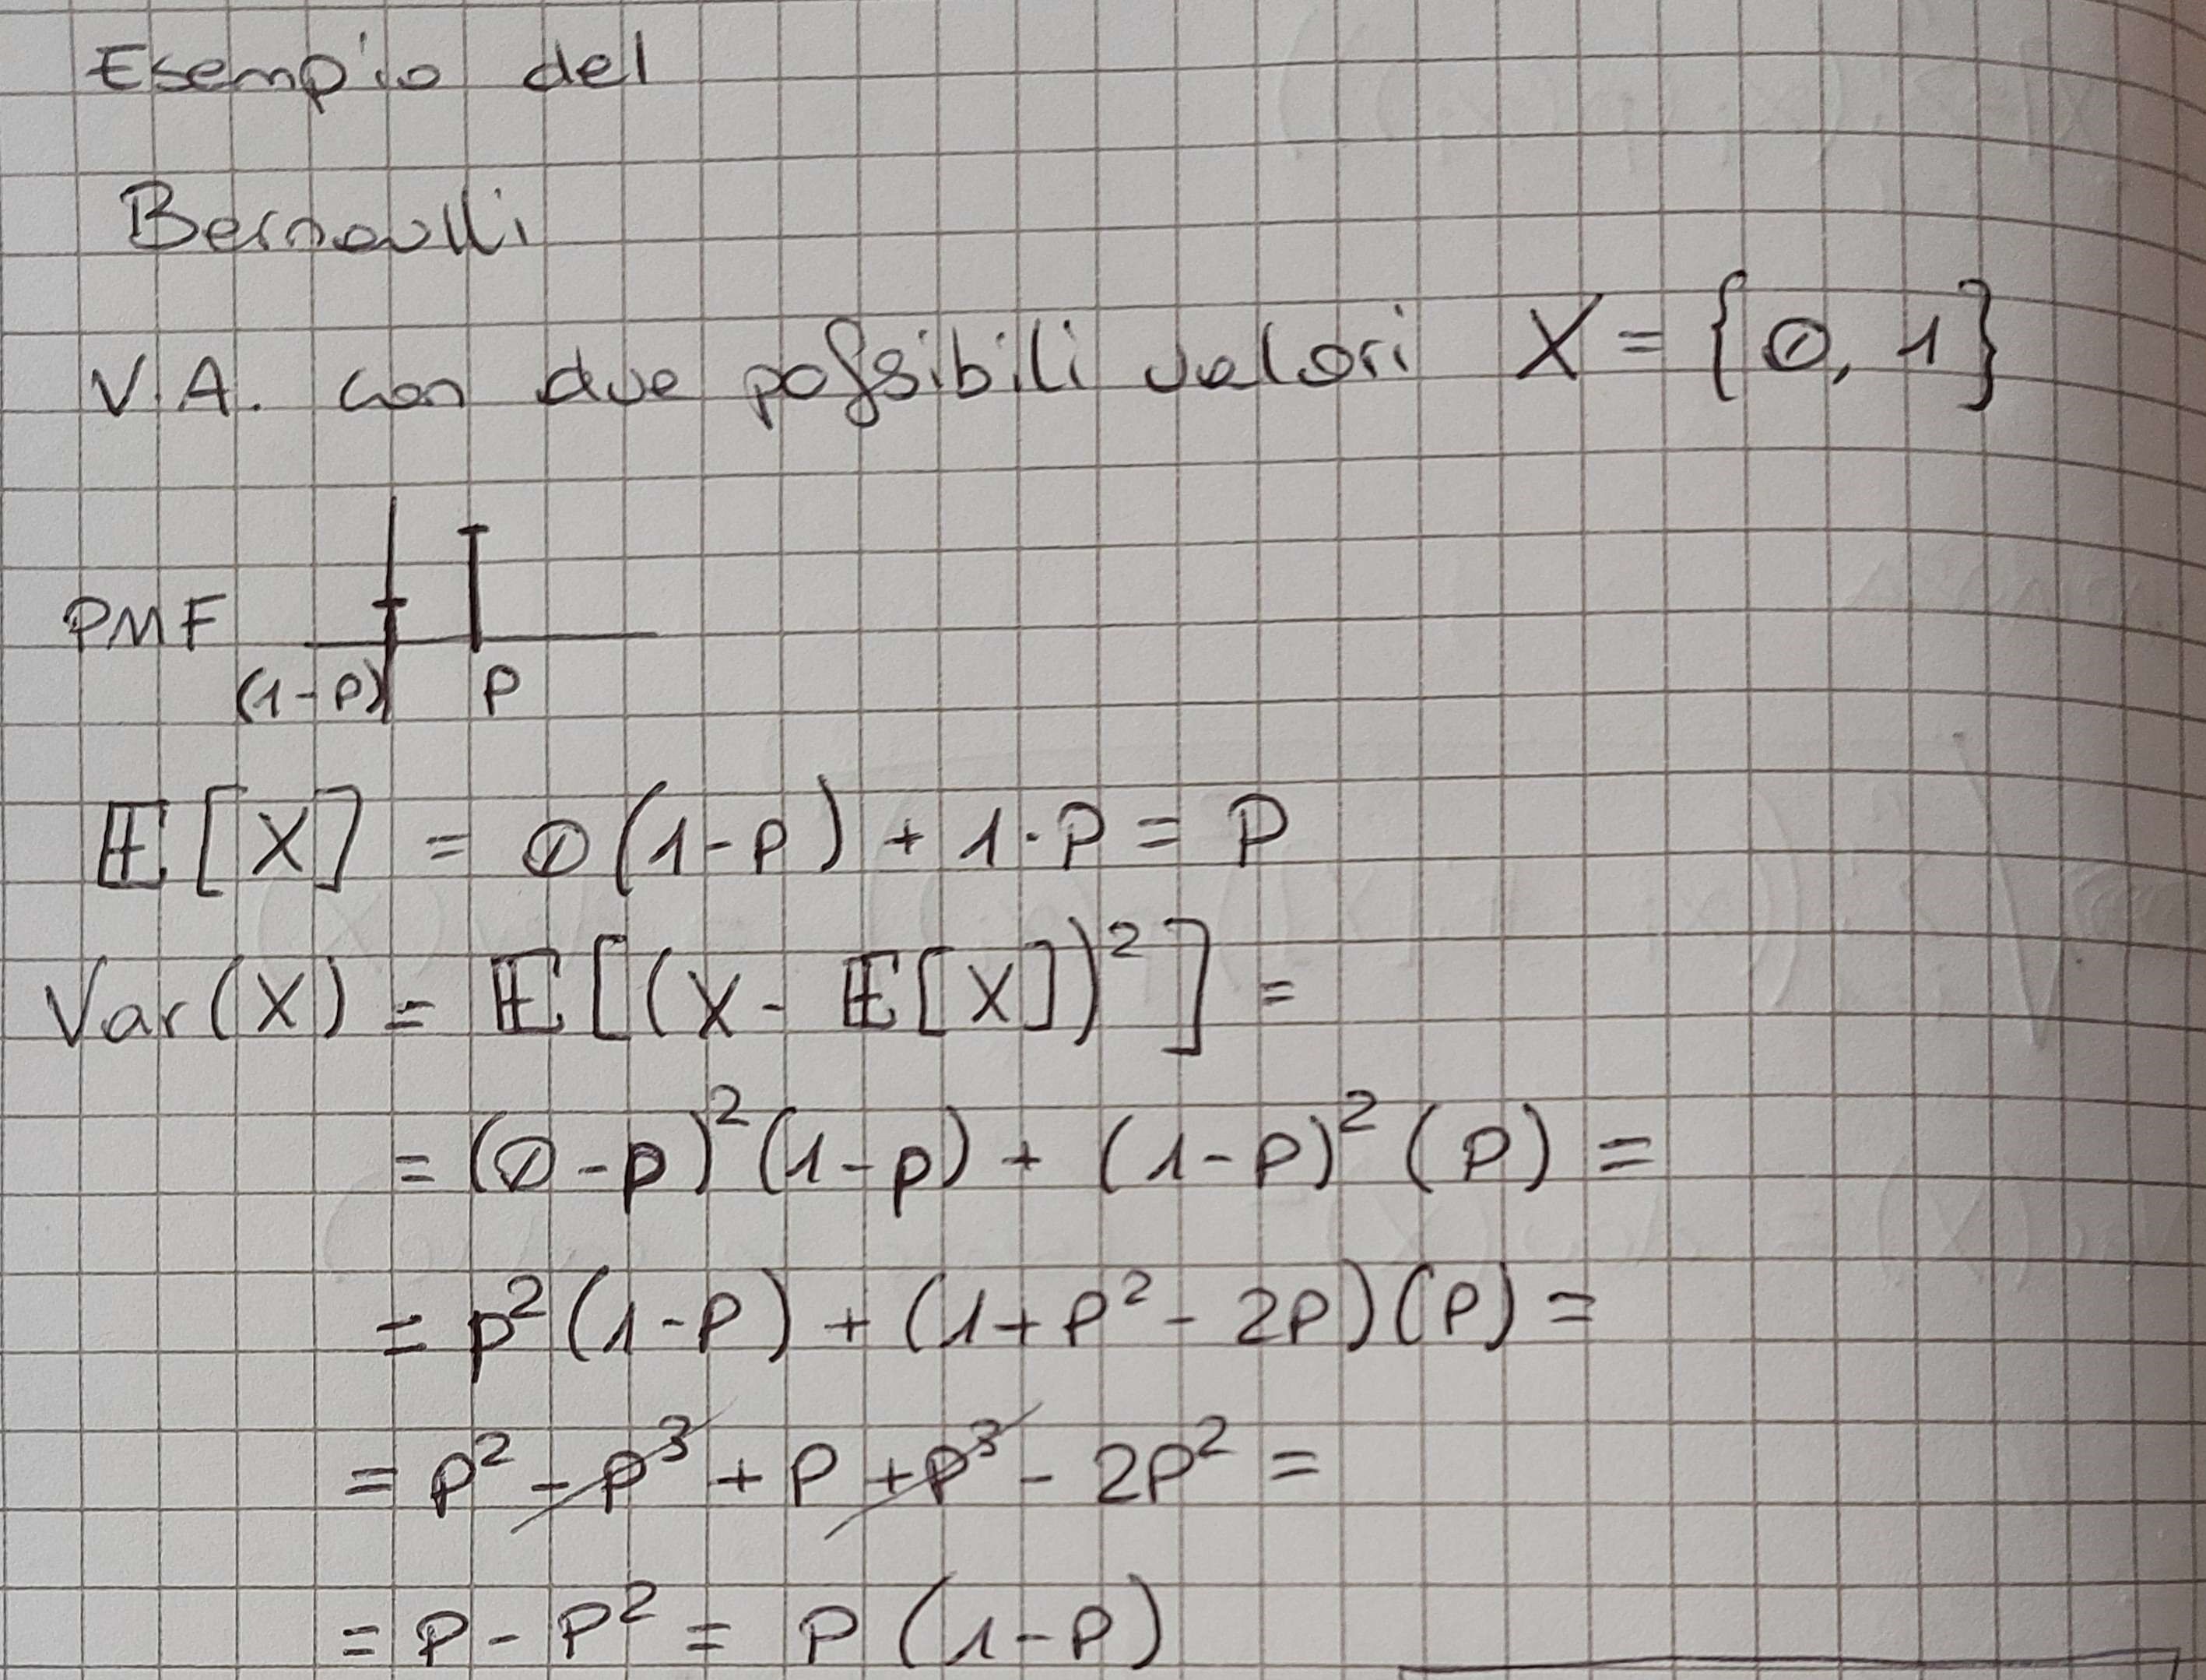 Esempio del
Bernoulli
V.A. con due possibili valori X = {0, 1}
PMF
(1-p) p
𝔼[X] = 0(1-p) + 1·p = p
Var(X) = 𝔼[(X - 𝔼[X])²] =
= (0-p)²(1-p) + (1-p)²(p) =
= p²(1-p) + (1+p² - 2p)(p) =
= p² - p³ + p + p³ - 2p² =
= p - p² = p(1-p)